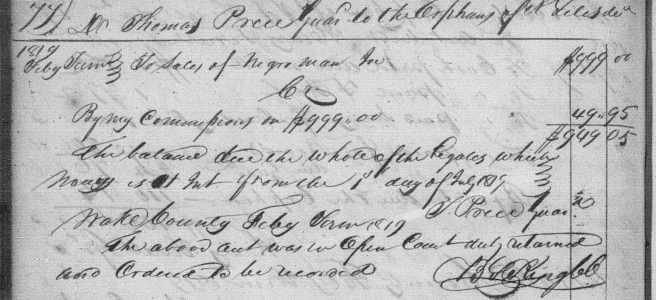 77) Dr Thomas Price Guar. to the Orphans of N Liles decd
1819
Feby Term To Sales of Negro man Jn $999.00
Cr
By my Commissions on $999.00 49.95
$949.05
The balance due the whole of the Legatees which
Money is at Int from the 1st day of July 1819
T Price Guar.
Wake County Feby Term 1819
The above acnt was in Open Court duly returned
and Ordered to be recorded B S King CC